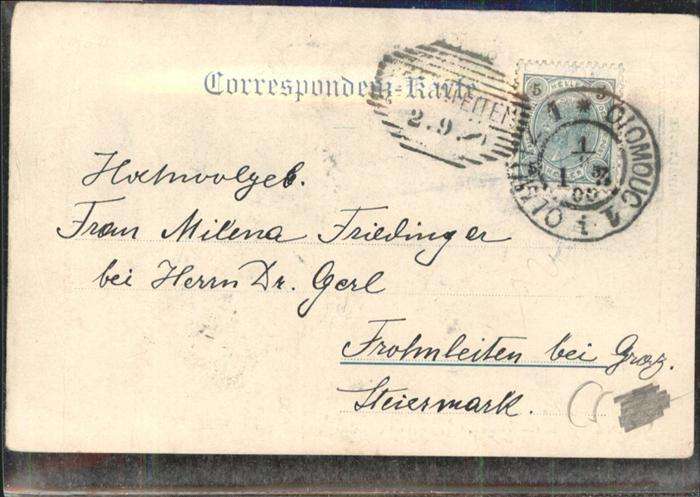 Correspondenz-Karte
5 5
2.9.
1 * OLOMOUC 1
1
09
Hochwolgeb.
Frau Milena Friedinger
bei Herrn Dr. Gerl
Frohnleiten bei Graz.
Steiermark.